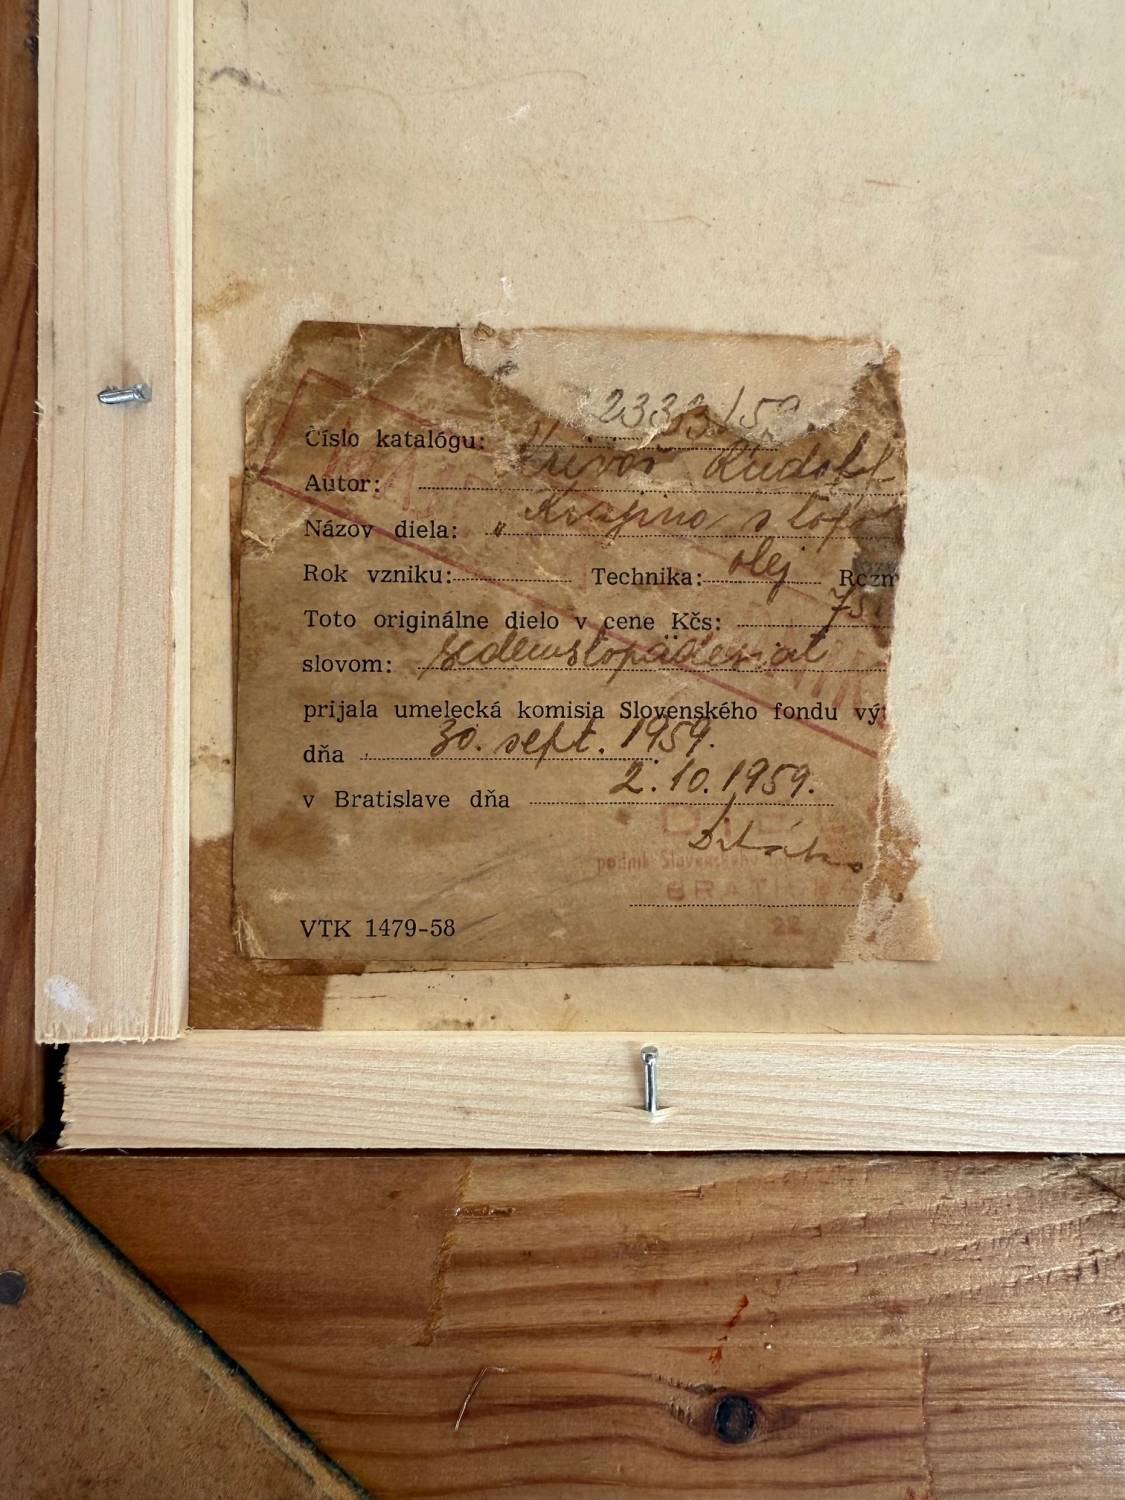 Číslo katalógu: 2333/59
Autor: Krivoš Rudolf
Názov diela: „Krajina s top
Rok vzniku: Technika: olej Rozm
Toto originálne dielo v cene Kčs: 75
slovom: sedemstopädesiat
prijala umelecká komisia Slovenského fondu vý
dňa 30. sept. 1959.
v Bratislave dňa 2.10.1959.
DIEL
podnik Slovenského
BRATISLA
22
VTK 1479-58